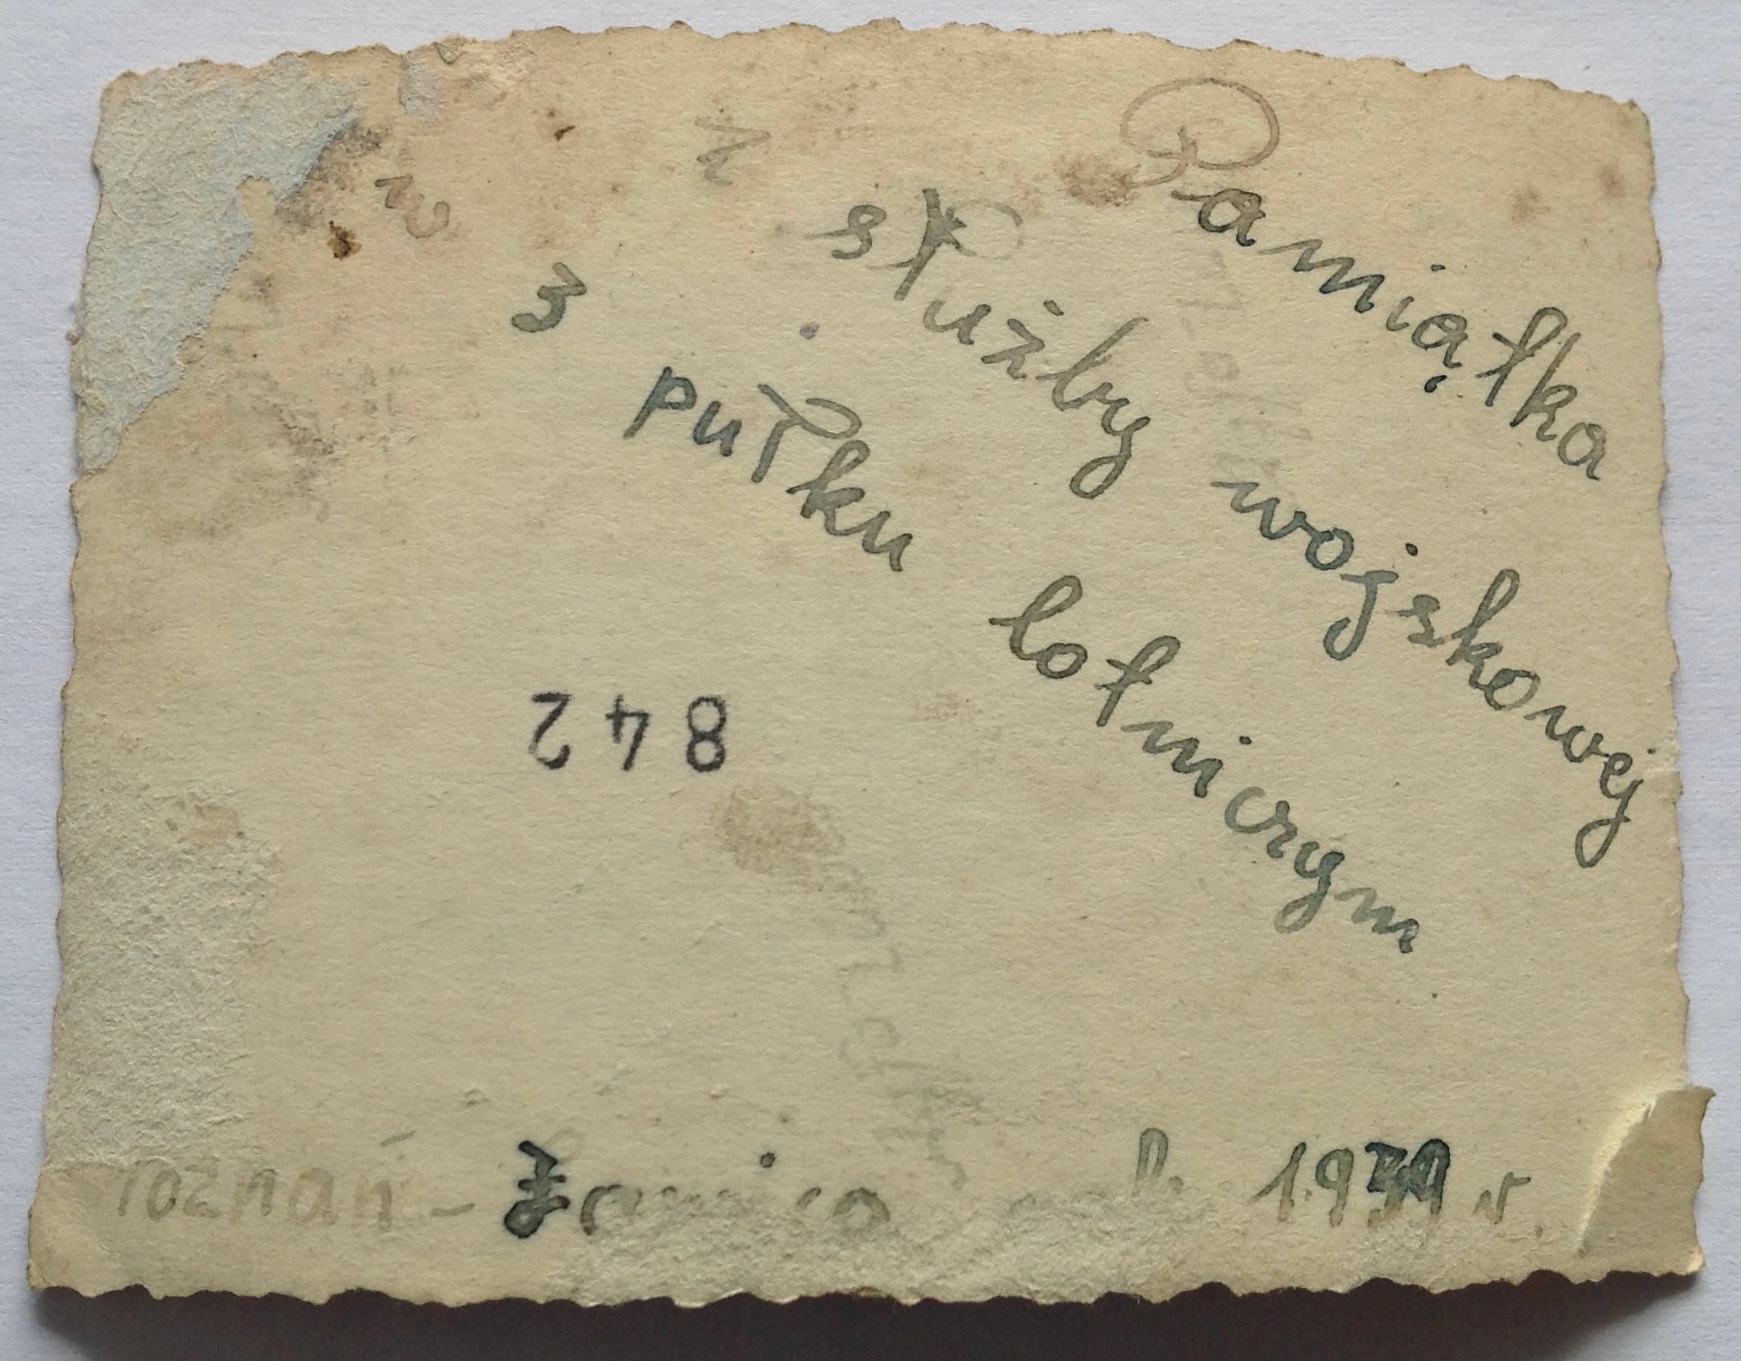 Pamiątka
z służby wojskowej
w 3 pułku lotniczym
842
Poznań - Ławica rok 1939 r.